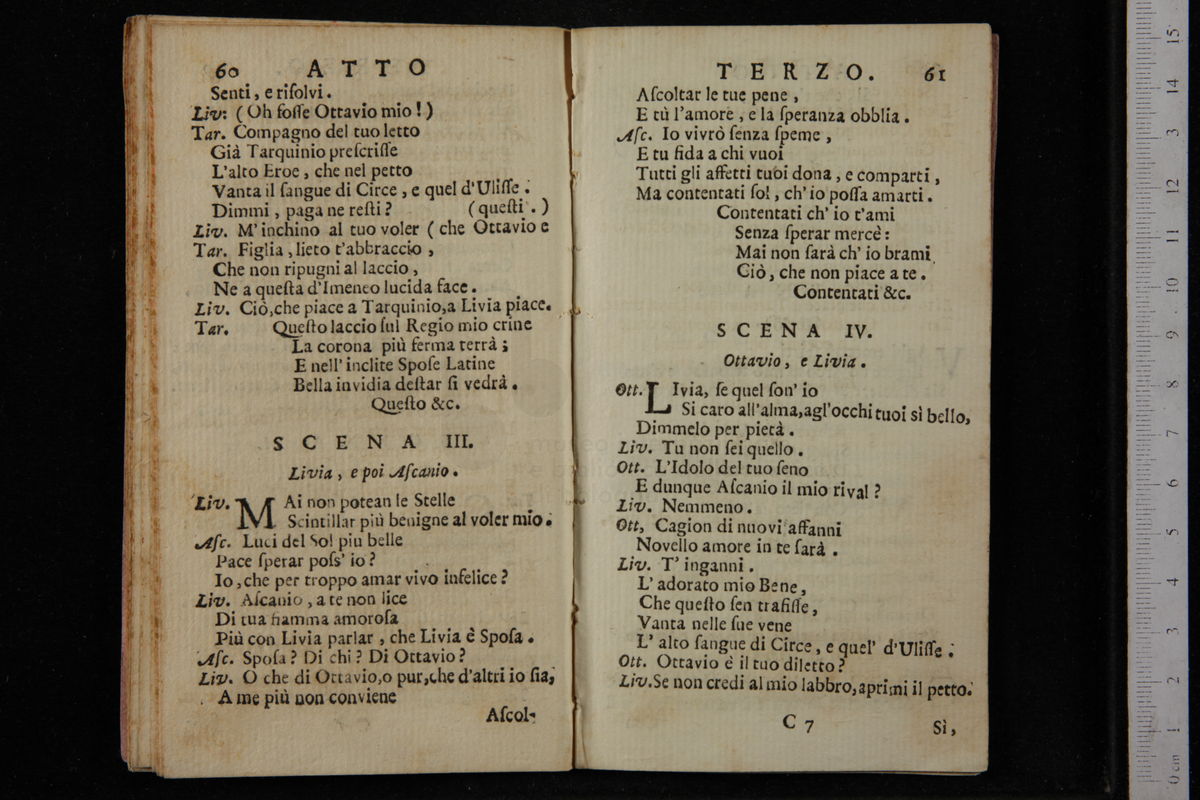 60 ATTO
Senti, e risolvi.
Liv: (Oh fosse Ottavio mio!)
Tar. Compagno del tuo letto
Già Tarquinio prescrisse
L'alto Eroe, che nel petto
Vanta il sangue di Circe, e quel d'Ulisse.
Dimmi, paga ne resti? (questi.)
Liv. M'inchino al tuo voler (che Ottavio e
Tar. Figlia, lieto t'abbraccio,
Che non ripugni al laccio,
Ne a questa d'Imeneo lucida face.
Liv. Ciò, che piace a Tarquinio, a Livia piace.
Tar. Questo laccio sul Regio mio crine
La corona più ferma terrà;
E nell'inclite Spose Latine
Bella invidia destar si vedrà.
Questo &c.
SCENA III.
Livia, e poi Ascanio.
Liv. MAi non potean le Stelle
Scintillar più benigne al voler mio.
Asc. Luci del Sol più belle
Pace sperar pols' io?
Io, che per troppo amar vivo infelice?
Liv. Ascanio, a te non lice
Di tua fiamma amorosa
Più con Livia parlar, che Livia è Sposa.
Asc. Sposa? Di chi? Di Ottavio?
Liv. O che di Ottavio, o pur, che d'altri io sia,
A me più non conviene
Ascol-
TERZO. 61
Ascoltar le tue pene,
E tù l'amore, e la speranza obblia.
Asc. Io vivrò senza speme,
E tu fida a chi vuoi
Tutti gli affetti tuoi dona, e comparti,
Ma contentati sol, ch' io possa amarti.
Contentati ch' io t'ami
Senza sperar mercè:
Mai non sarà ch' io brami
Ciò, che non piace a te.
Contentati &c.
SCENA IV.
Ottavio, e Livia.
Ott. LIvia, se quel son' io
Si caro all'alma, agl'occhi tuoi sì bello,
Dimmelo per pietà.
Liv. Tu non sei quello.
Ott. L'Idolo del tuo seno
E dunque Ascanio il mio rival?
Liv. Nemmeno.
Ott, Cagion di nuovi affanni
Novello amore in te sarà.
Liv. T' inganni.
L' adorato mio Bene,
Che questo sen trafisse,
Vanta nelle sue vene
L' alto sangue di Circe, e quel' d'Ulisse.
Ott. Ottavio è il tuo diletto?
Liv. Se non credi al mio labbro, aprimi il petto.
C 7
Sì,